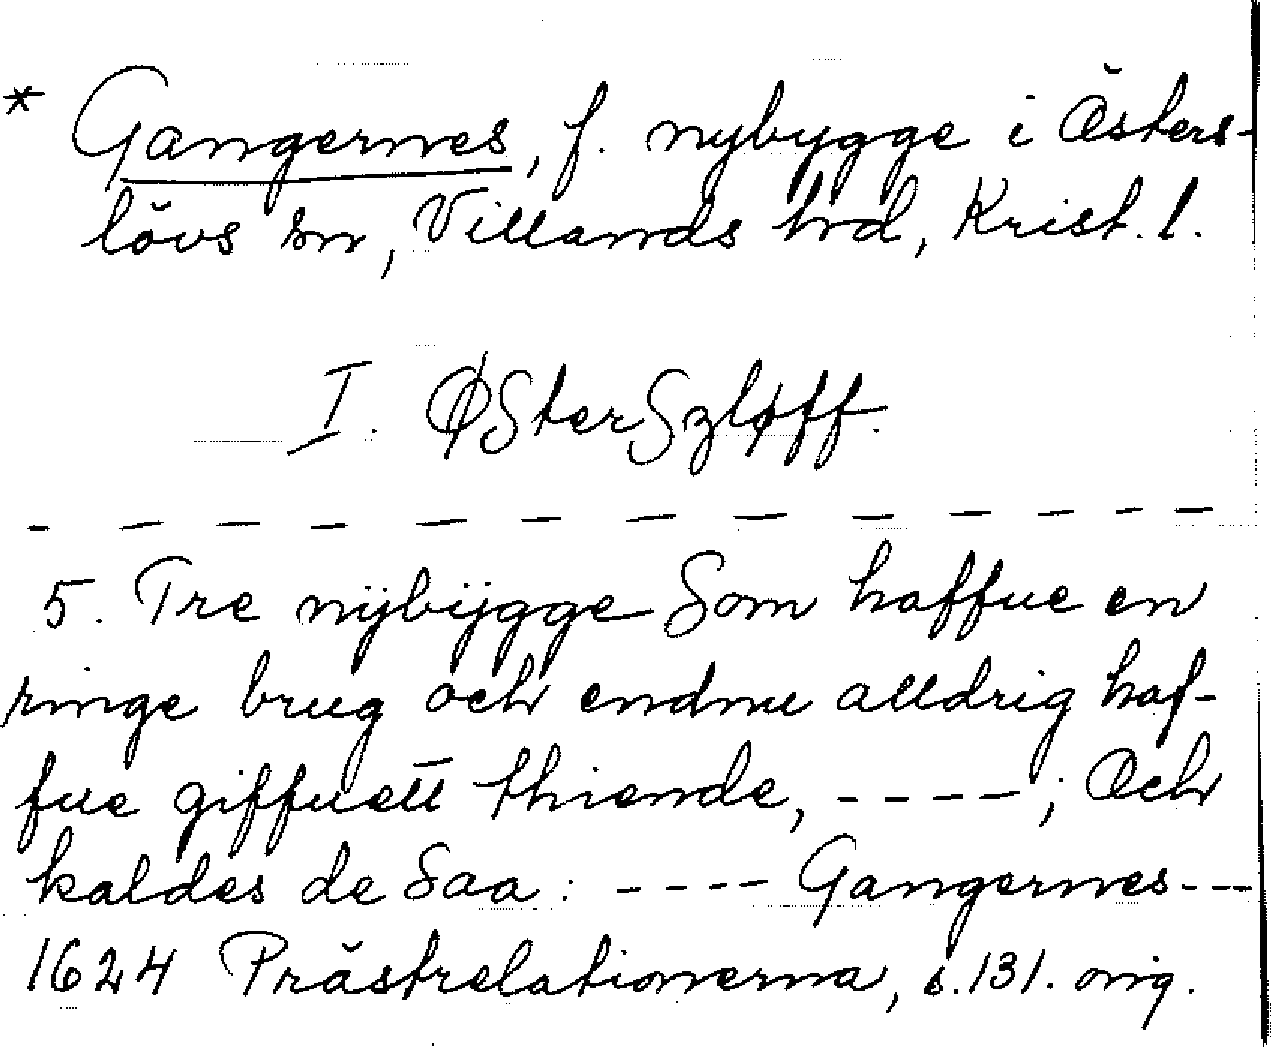 * Gangernes, f. nybygge i Östers-
lövs sn, Villands hd, Krist. l.
I. ØSterSzløff.
- - - - - - - - - - - -
5. Tre nÿbÿgge Som haffue en
ringe brug och endnu alldrig haf-
fue giffuett thiende, - - - - ; Och
kaldes de Saa : - - - - Gangernes - - -
1624 Prästrelationerna, s. 131. orig.